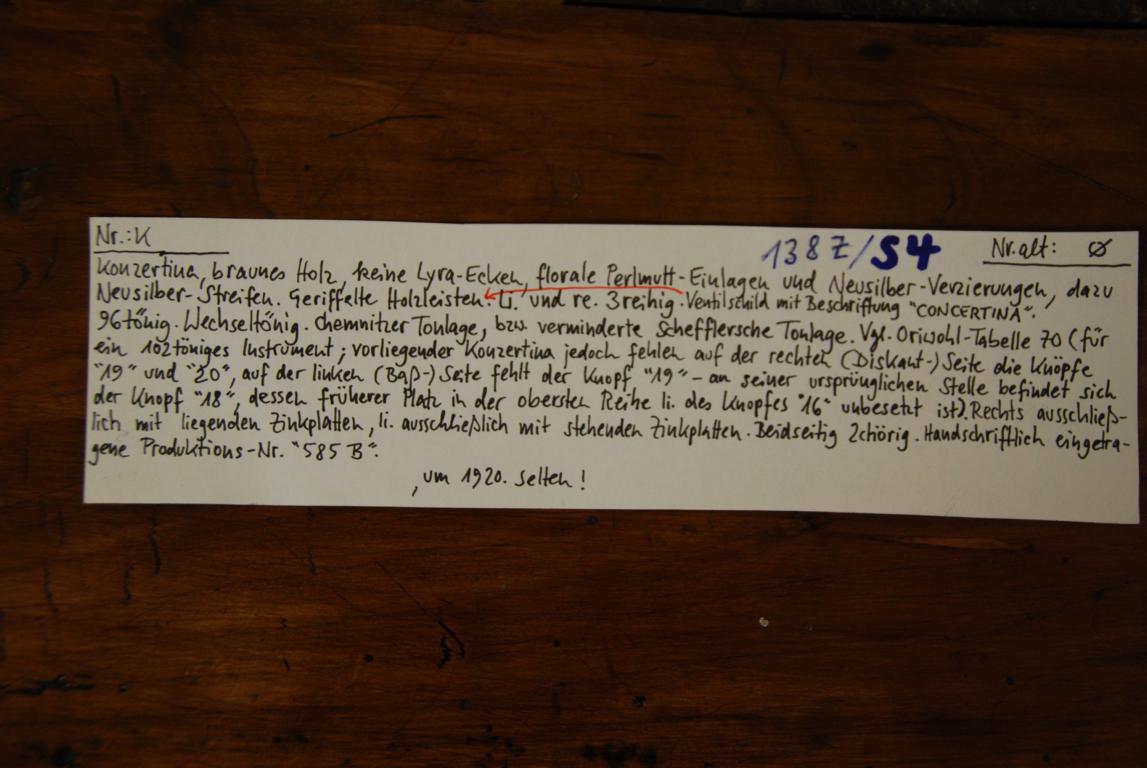 Nr.: K
138 Z/S4
Nr. alt: ∅
Konzertina, braunes Holz, keine Lyra-Ecken, florale Perlmutt-Einlagen und Neusilber-Verzierungen, dazu
Neusilber-Streifen. Geriffelte Holzleisten. Li. und re. 3reihig. Ventilschild mit Beschriftung "CONCERTINA".
96tönig. Wechseltönig. Chemnitzer Tonlage, bzw. verminderte Schefflersche Tonlage. Vgl. Oriwohl-Tabelle 70 (für
ein 102töniges Instrument; vorliegender Konzertina jedoch fehlen auf der rechten (Diskant-) Seite die Knöpfe
"19" und "20", auf der linken (Baß-) Seite fehlt der Knopf "19" - an seiner ursprünglichen Stelle befindet sich
der Knopf "18", dessen früherer Platz in der obersten Reihe li. des Knopfes "16" unbesetzt ist). Rechts ausschließ-
lich mit liegenden Zinkplatten, li. ausschließlich mit stehenden Zinkplatten. Beidseitig 2chörig. Handschriftlich eingetra-
gene Produktions-Nr. "585 B".
, um 1920. selten!